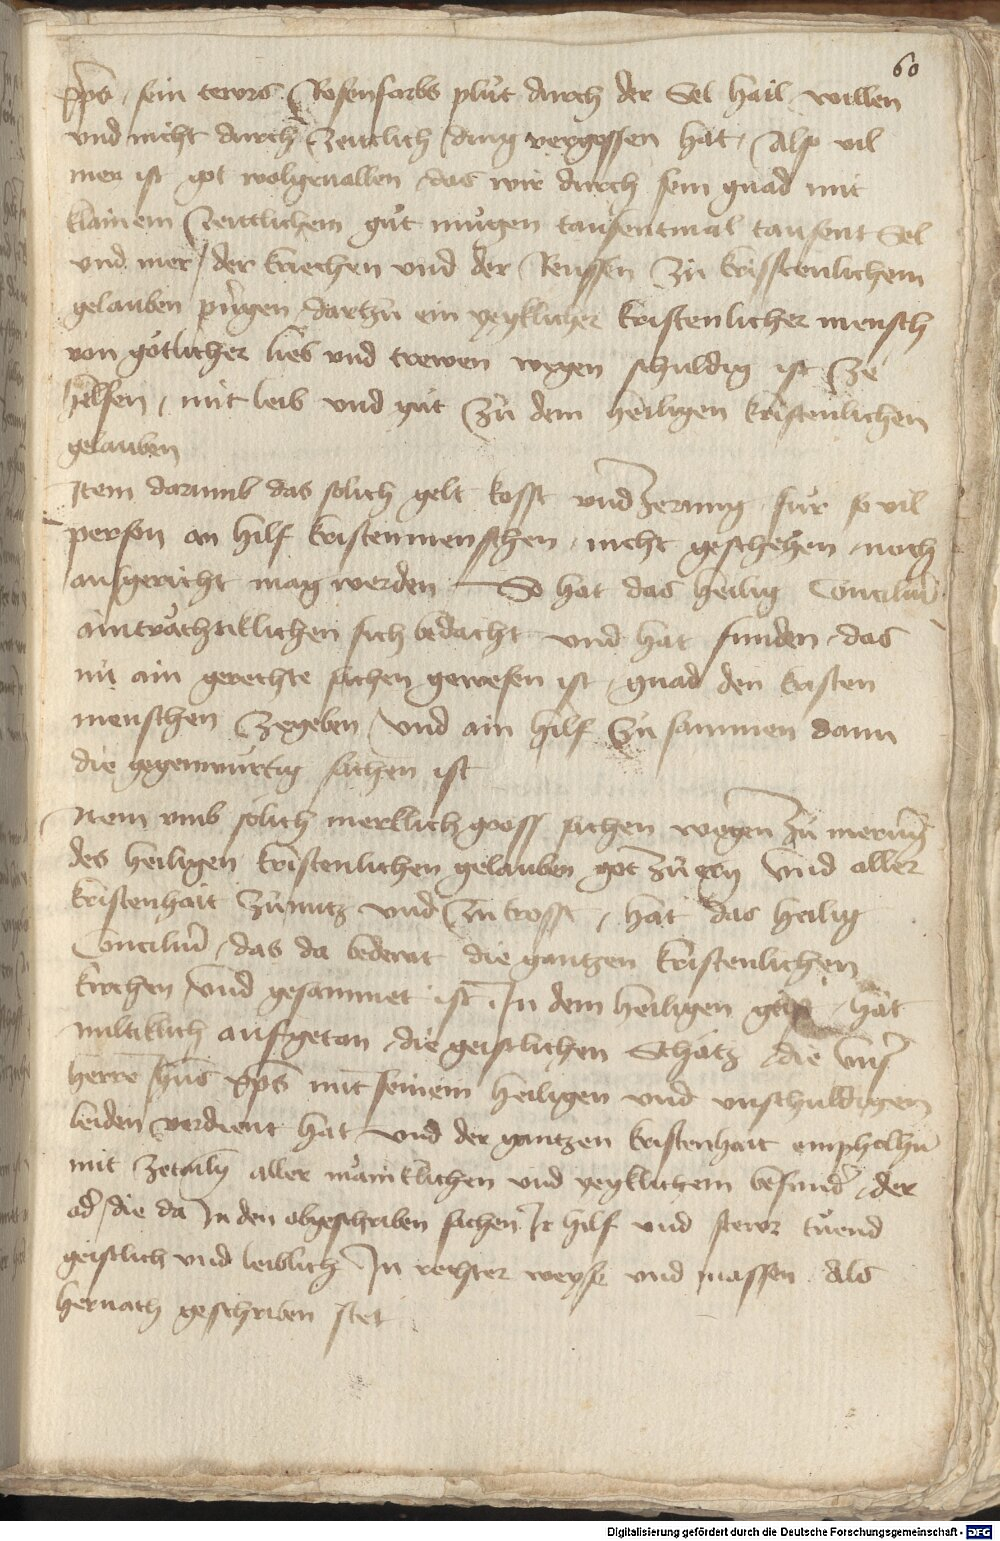 60
xp̄s sein tewrs Rosenfarbs plůt durch der Sel hail willen
vnd nicht durch Zeittlich ding vergossen hat / Also vil
mer ist got wolgeuallen das wir durch sein gnad mit
klainem Zeittlichem gůt mugen tausentmal tausent Sel
vnd mer / der kriechen vnd der Reussen zů kristenlichem
gelauben pringen dartzů ein yeglicher kristenlicher mensch
von gotlicher lieb vnd trewen wegen schuldig ist Ze
helfen / mit leib vnd gůt Zů dem heiligen kristenlichen
gelauben
Item darumb das solich gelt kosst vnd Zerung fur so vil
person an hilf kristenmenschen nicht geschehen noch
ausgericht mag werden So hat das heilig Conciliū
aintrachtiklichen sich bedacht vnd hat funden das
nit ain gerechte sachen gewesen ist gnad den kristen
menschen Zegeben / vnd ain hilf Zů sammen dann
die gegenwurtig sachen ist
Item vmb solich merklich gross sachen wegen Zů merung
des heiligen kristenlichen gelauben got Zů ern Vnd aller
kristenhait Zůnutz vnd Zu trosst / hat das heilig
Conciliū / das da bedewt die gantzen kristenlichen
kirchen Vnd gesammet ist In dem heiligen geist hat
miltiklich aufgetan die geistlichen Schätz die Vnser
herre Jh̄us xp̄s mit seinem heiligen vnd vnschuldigen
leiden verdient hat vnd der gantzen kristenhait emphelhn̄
mit Zetailn̄ aller mainklichen vnd yeglichem besunder der
od̄ die da In den obgeschriben sachen Ir hilf vnd stewr tůend
geistlich vnd leiblich In rechter weyse vnd massen Als
hernach geschriben stet
Digitalisierung gefördert durch die Deutsche Forschungsgemeinschaft - DFG